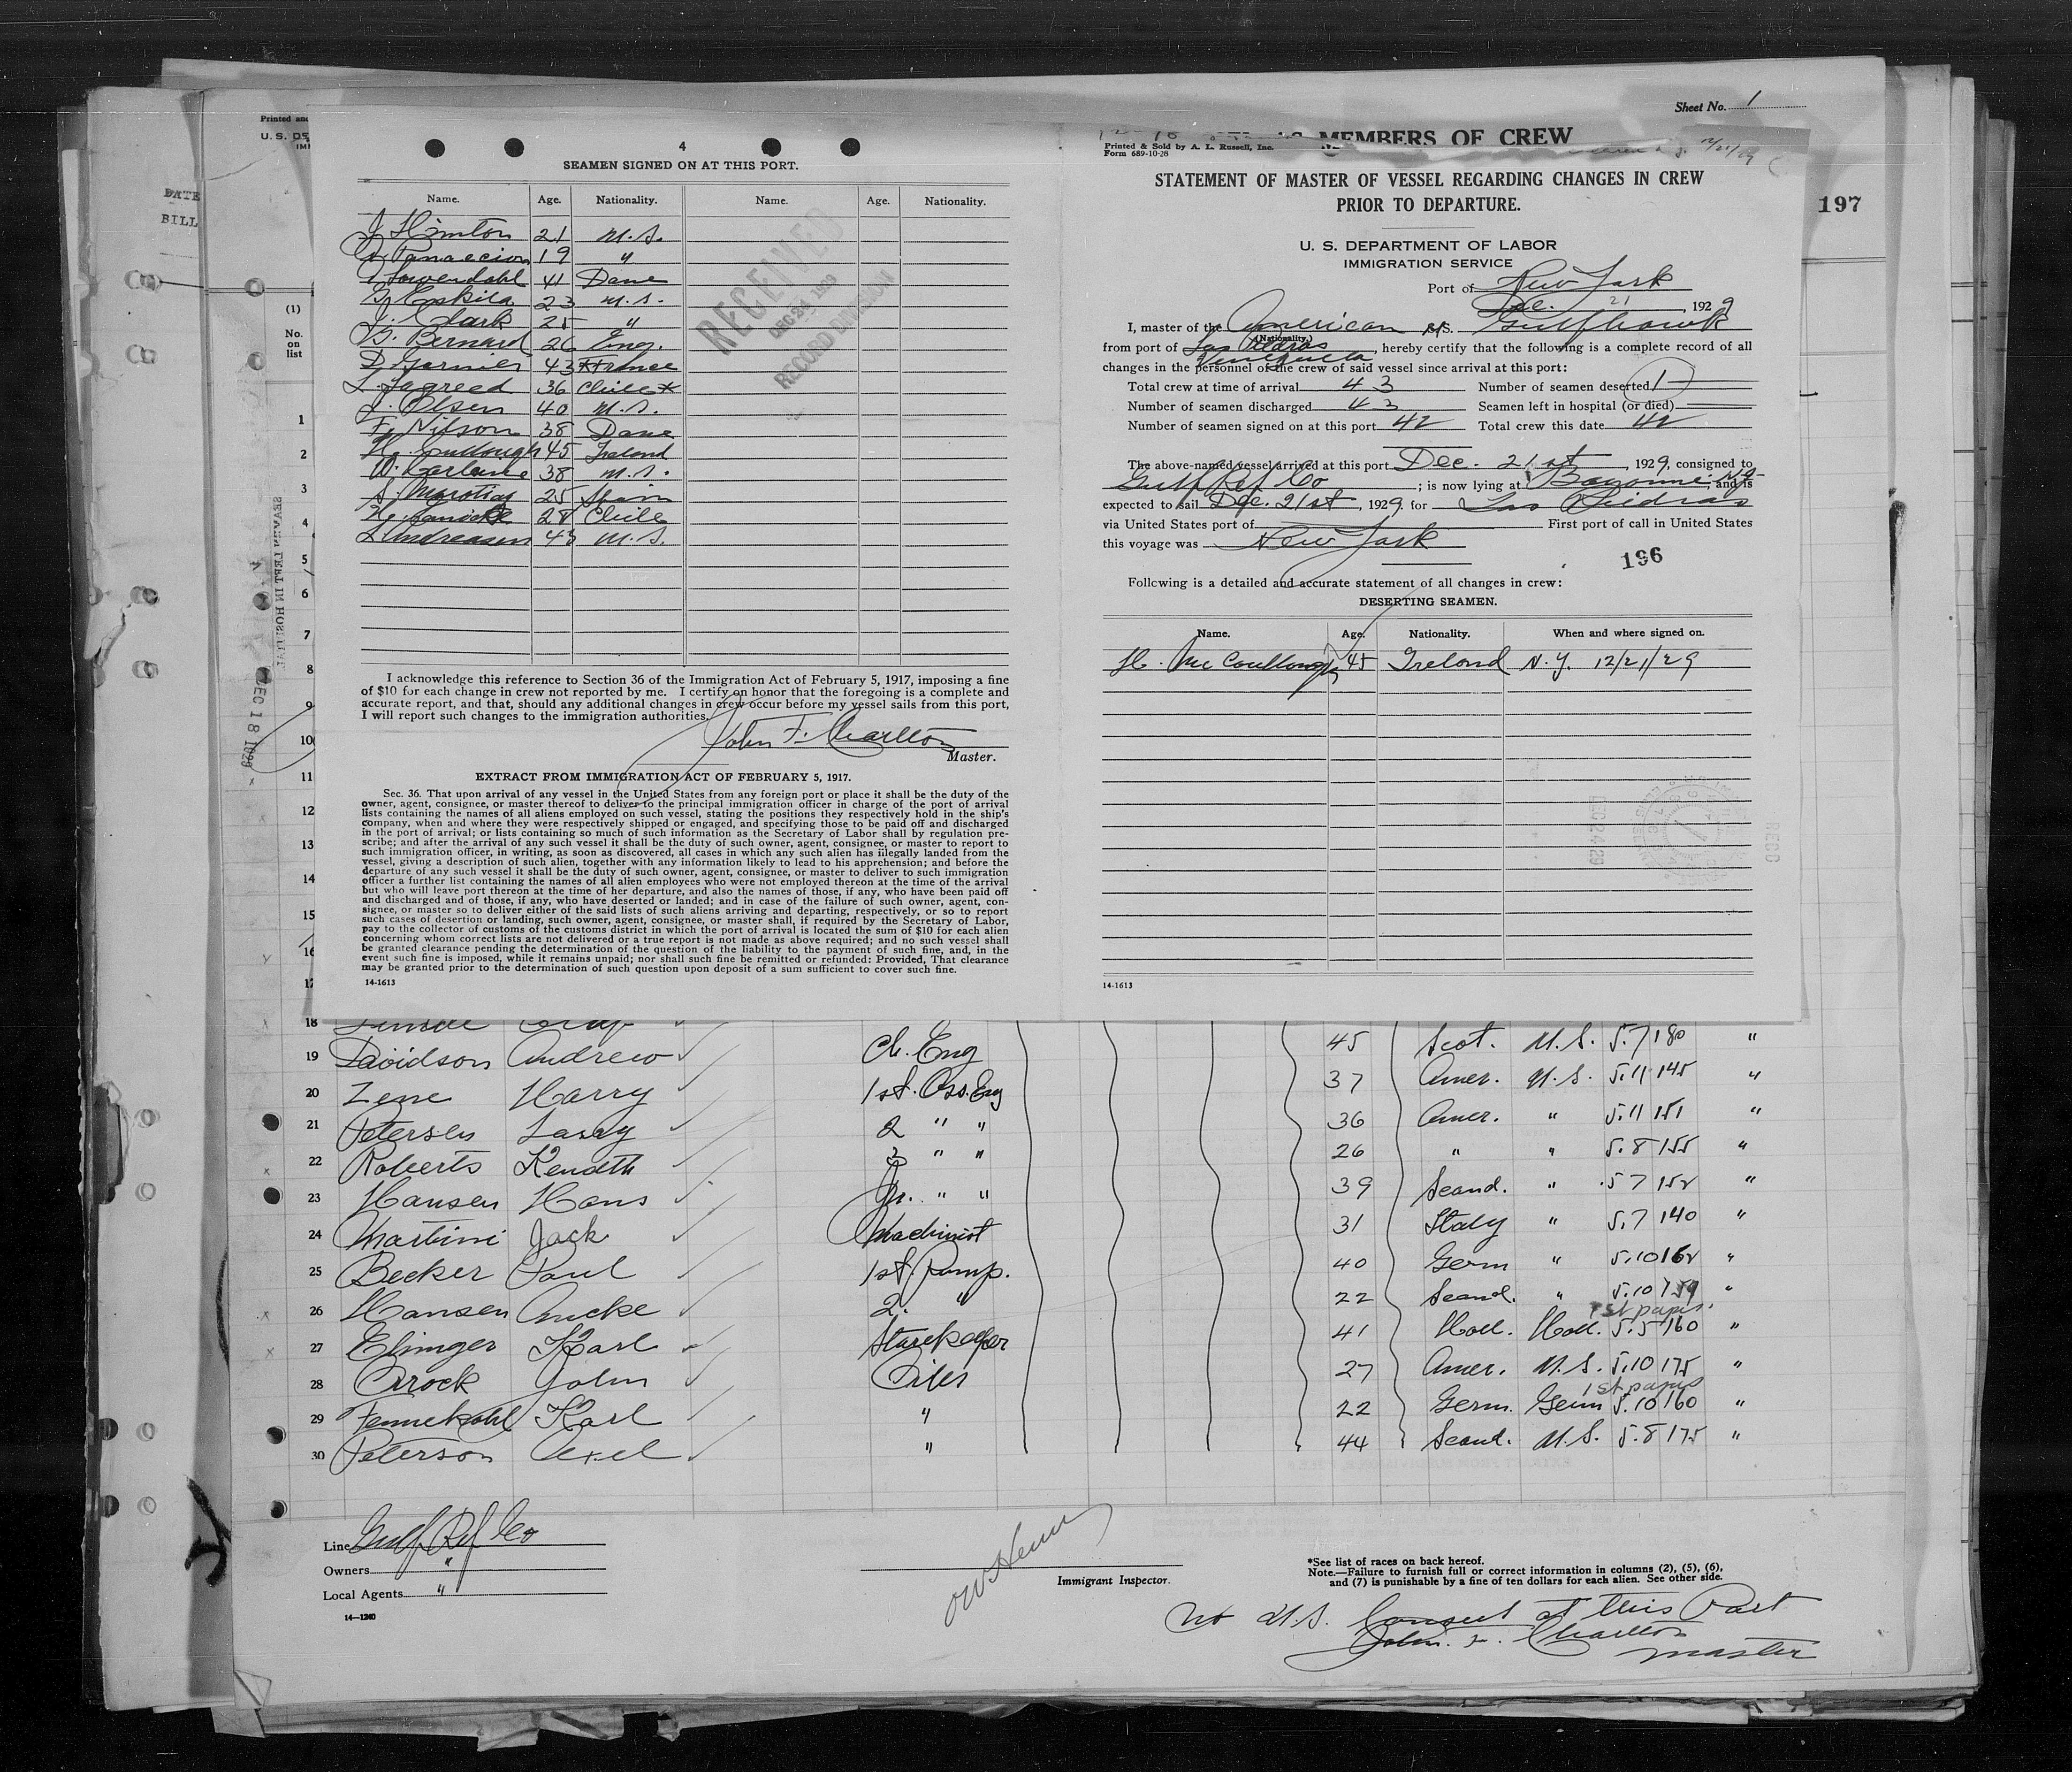 Sheet No. 1
Printed and
U. S. DE
4
SEAMEN SIGNED ON AT THIS PORT.
Name. Age. Nationality. Name. Age. Nationality.
J Hinton 21 U.S.
19 "
41 Dane
23 U.S.
J. Clark 25 "
G. Bernard 26 Eng.
D Garnier 43 France
L. Lagreed 36 Chile
L. Olsen 40 U.S.
F. Nilson 38 Dane
45 Ireland
38 U.S.
25 Spain
28 Chile
L Andreasen 43 U.S.
RECEIVED
DEC 24 1929
RECORD DIVISION
I acknowledge this reference to Section 36 of the Immigration Act of February 5, 1917, imposing a fine
of $10 for each change in crew not reported by me. I certify on honor that the foregoing is a complete and
accurate report, and that, should any additional changes in crew occur before my vessel sails from this port,
I will report such changes to the immigration authorities.
John F. Charlton
Master.
EXTRACT FROM IMMIGRATION ACT OF FEBRUARY 5, 1917.
Sec. 36. That upon arrival of any vessel in the United States from any foreign port or place it shall be the duty of the
owner, agent, consignee, or master thereof to deliver to the principal immigration officer in charge of the port of arrival
lists containing the names of all aliens employed on such vessel, stating the positions they respectively hold in the ship's
company, when and where they were respectively shipped or engaged, and specifying those to be paid off and discharged
in the port of arrival; or lists containing so much of such information as the Secretary of Labor shall by regulation pre-
scribe; and after the arrival of any such vessel it shall be the duty of such owner, agent, consignee, or master to report to
such immigration officer, in writing, as soon as discovered, all cases in which any such alien has illegally landed from the
vessel, giving a description of such alien, together with any information likely to lead to his apprehension; and before the
departure of any such vessel it shall be the duty of such owner, agent, consignee, or master to deliver to such immigration
officer a further list containing the names of all alien employees who were not employed thereon at the time of the arrival
but who will leave port thereon at the time of her departure, and also the names of those, if any, who have been paid off
and discharged and of those, if any, who have deserted or landed; and in case of the failure of such owner, agent, con-
signee, or master so to deliver either of the said lists of such aliens arriving and departing, respectively, or so to report
such cases of desertion or landing, such owner, agent, consignee, or master shall, if required by the Secretary of Labor,
pay to the collector of customs of the customs district in which the port of arrival is located the sum of $10 for each alien
concerning whom correct lists are not delivered or a true report is not made as above required; and no such vessel shall
be granted clearance pending the determination of the question of the liability to the payment of such fine, and, in the
event such fine is imposed, while it remains unpaid; nor shall such fine be remitted or refunded: Provided, That clearance
may be granted prior to the determination of such question upon deposit of a sum sufficient to cover such fine.
14-1613
MEMBERS OF CREW
Printed & Sold by A. L. Russell, Inc.
Form 689-10-28
STATEMENT OF MASTER OF VESSEL REGARDING CHANGES IN CREW
PRIOR TO DEPARTURE.
U. S. DEPARTMENT OF LABOR
IMMIGRATION SERVICE
Port of New York
Dec. 21, 1929
I, master of the American S/S. Gulfhawk
(Nationality.)
from port of Las Piedras Venezuela, hereby certify that the following is a complete record of all
changes in the personnel of the crew of said vessel since arrival at this port:
Total crew at time of arrival 43 Number of seamen deserted 1
Number of seamen discharged 43 Seamen left in hospital (or died)
Number of seamen signed on at this port 42 Total crew this date 42
The above-named vessel arrived at this port Dec. 21st, 1929, consigned to
Gulf Ref Co; is now lying at Bayonne N.J.; and is
expected to sail Dec. 21st, 1929 for Las Piedras
via United States port of First port of call in United States
this voyage was New York
196
Following is a detailed and accurate statement of all changes in crew:
DESERTING SEAMEN.
Name. Age. Nationality. When and where signed on.
H. McCoullough 45 Ireland N.Y. 12/21/29
DEC 24 29
14-1613
197
DATE
BILL
(1)
No.
on
list
SEAMEN LEFT IN HOSPITAL
DEC 18 1929
1
2
3
4
5
6
7
8
9
10
11
12
13
14
15
16
17
18
19 Davidson Andrew Ch. Eng 45 Scot. U.S. 5.7 180 "
20 Zene Harry 1st. Ass. Eng 37 Amer. U.S. 5.11 145 "
21 Petersen Larry 2 " " 36 Amer. " 5.11 151 "
22 Roberts Kenneth 3 " " 26 " " 5.8 155 "
23 Hansen Hans Jr. " " 39 Scand. " 5 7 152 "
24 Martini Jack Machinist 31 Italy " 5.7 140 "
25 Becker Paul 1st. Pump. 40 Germ " 5.10 162 "
26 Hansen 2. " 22 Scand. " 5.10 159 "
1st papers.
27 Elinger Karl Storekeeper 41 Holl. Holl. 5.5 160 "
28 Brock John Oiler 27 Amer. U.S. 5.10 175 "
1st papers
29 Karl " 22 Germ. Germ 5.10 160 "
30 Peterson Axel " 44 Scand. U.S. 5.8 175 "
Line Gulf Ref Co
Owners "
Local Agents "
14—1240
Immigrant Inspector.
*See list of races on back hereof.
Note.—Failure to furnish full or correct information in columns (2), (5), (6),
and (7) is punishable by a fine of ten dollars for each alien. See other side.
No U.S. Consul at this Port
John. F. Charlton
master